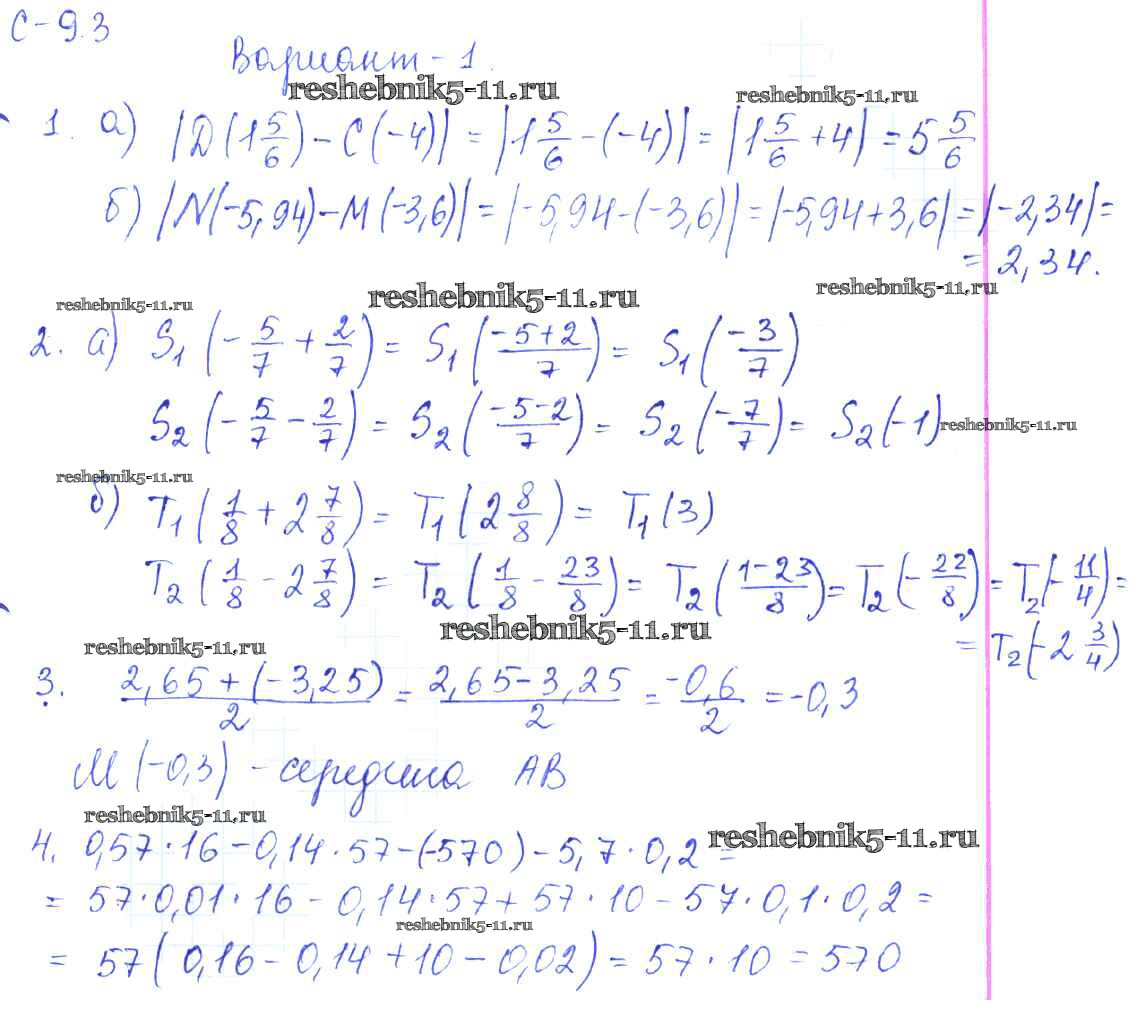 С-9.3
Вариант-1.
reshebnik5-11.ru
reshebnik5-11.ru
1. а) |D(1 5/6) - C(-4)| = |1 5/6 - (-4)| = |1 5/6 + 4| = 5 5/6
б) |N(-5,94) - M(-3,6)| = |-5,94 - (-3,6)| = |-5,94 + 3,6| = |-2,34| =
= 2,34.
reshebnik5-11.ru
reshebnik5-11.ru
reshebnik5-11.ru
2. а) S₁(-5/7 + 2/7) = S₁((-5+2)/7) = S₁(-3/7)
S₂(-5/7 - 2/7) = S₂((-5-2)/7) = S₂(-7/7) = S₂(-1)
reshebnik5-11.ru
reshebnik5-11.ru
б) T₁(1/8 + 2 7/8) = T₁(2 8/8) = T₁(3)
T₂(1/8 - 2 7/8) = T₂(1/8 - 23/8) = T₂((1-23)/8) = T₂(-22/8) = T₂(-11/4) =
= T₂(-2 3/4)
reshebnik5-11.ru
reshebnik5-11.ru
3. (2,65 + (-3,25))/2 = (2,65 - 3,25)/2 = -0,6/2 = -0,3
M(-0,3) - середина AB
reshebnik5-11.ru
reshebnik5-11.ru
4. 0,57·16 - 0,14·57 - (-570) - 5,7·0,2 =
= 57·0,01·16 - 0,14·57 + 57·10 - 57·0,1·0,2 =
reshebnik5-11.ru
= 57(0,16 - 0,14 + 10 - 0,02) = 57·10 = 570